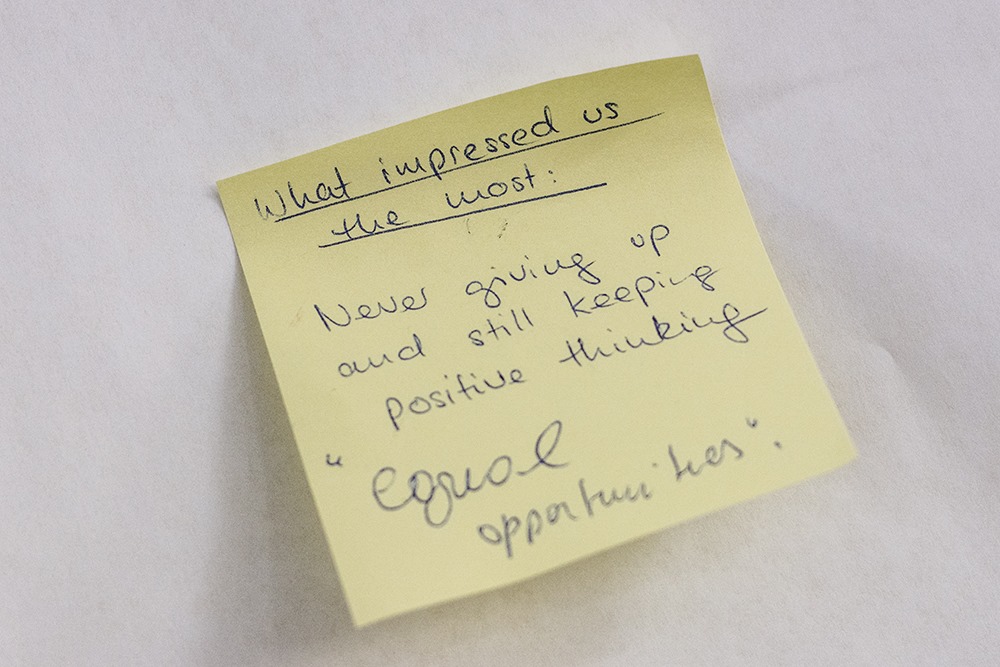 What impressed us
the most:
Never giving up
and still keeping
positive thinking
"equal
opportunities".